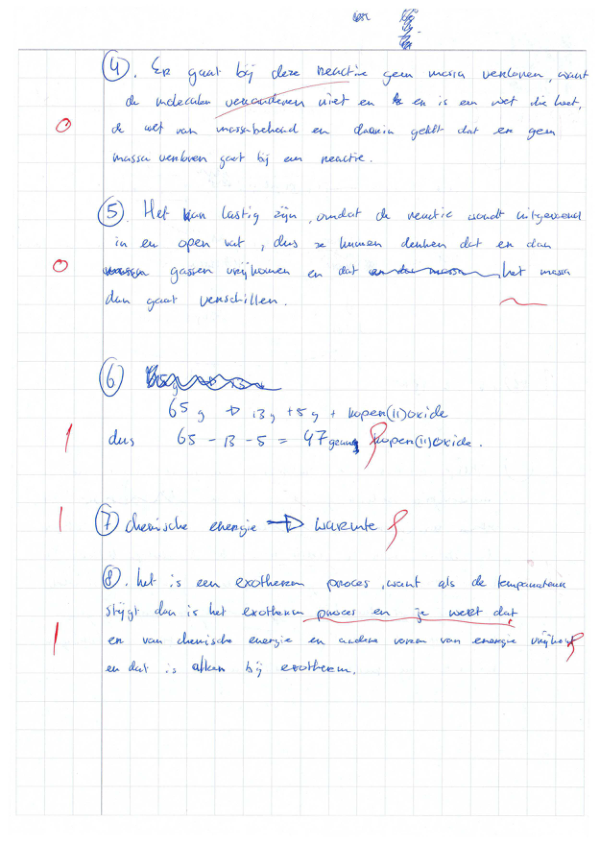 ④. Er gaat bij deze reactie geen massa verloren, want
de moleculen veranderen niet en er is een wet die heet,
0 de wet van massabehoud en daarin geldt dat er geen
massa verloren gaat bij een reactie.
⑤. Het kan lastig zijn, omdat de reactie wordt uitgevoerd
in en open vat, dus ze kunnen denken dat er dan
0 gassen vrijkomen en dat het massa
dan gaat verschillen.
⑥
65 g → 13 g + 5 g + koper(II)oxide
1 dus 65 - 13 - 5 = 47 gram koper(II)oxide.
1 ⑦ chemische energie → warmte
⑧. het is een exotherm proces, want als de temperatuur
stijgt dan is het exotherm proces en je weet dat
1 er van chemische energie en andere vormen van energie
en dat is alleen bij exotherm.